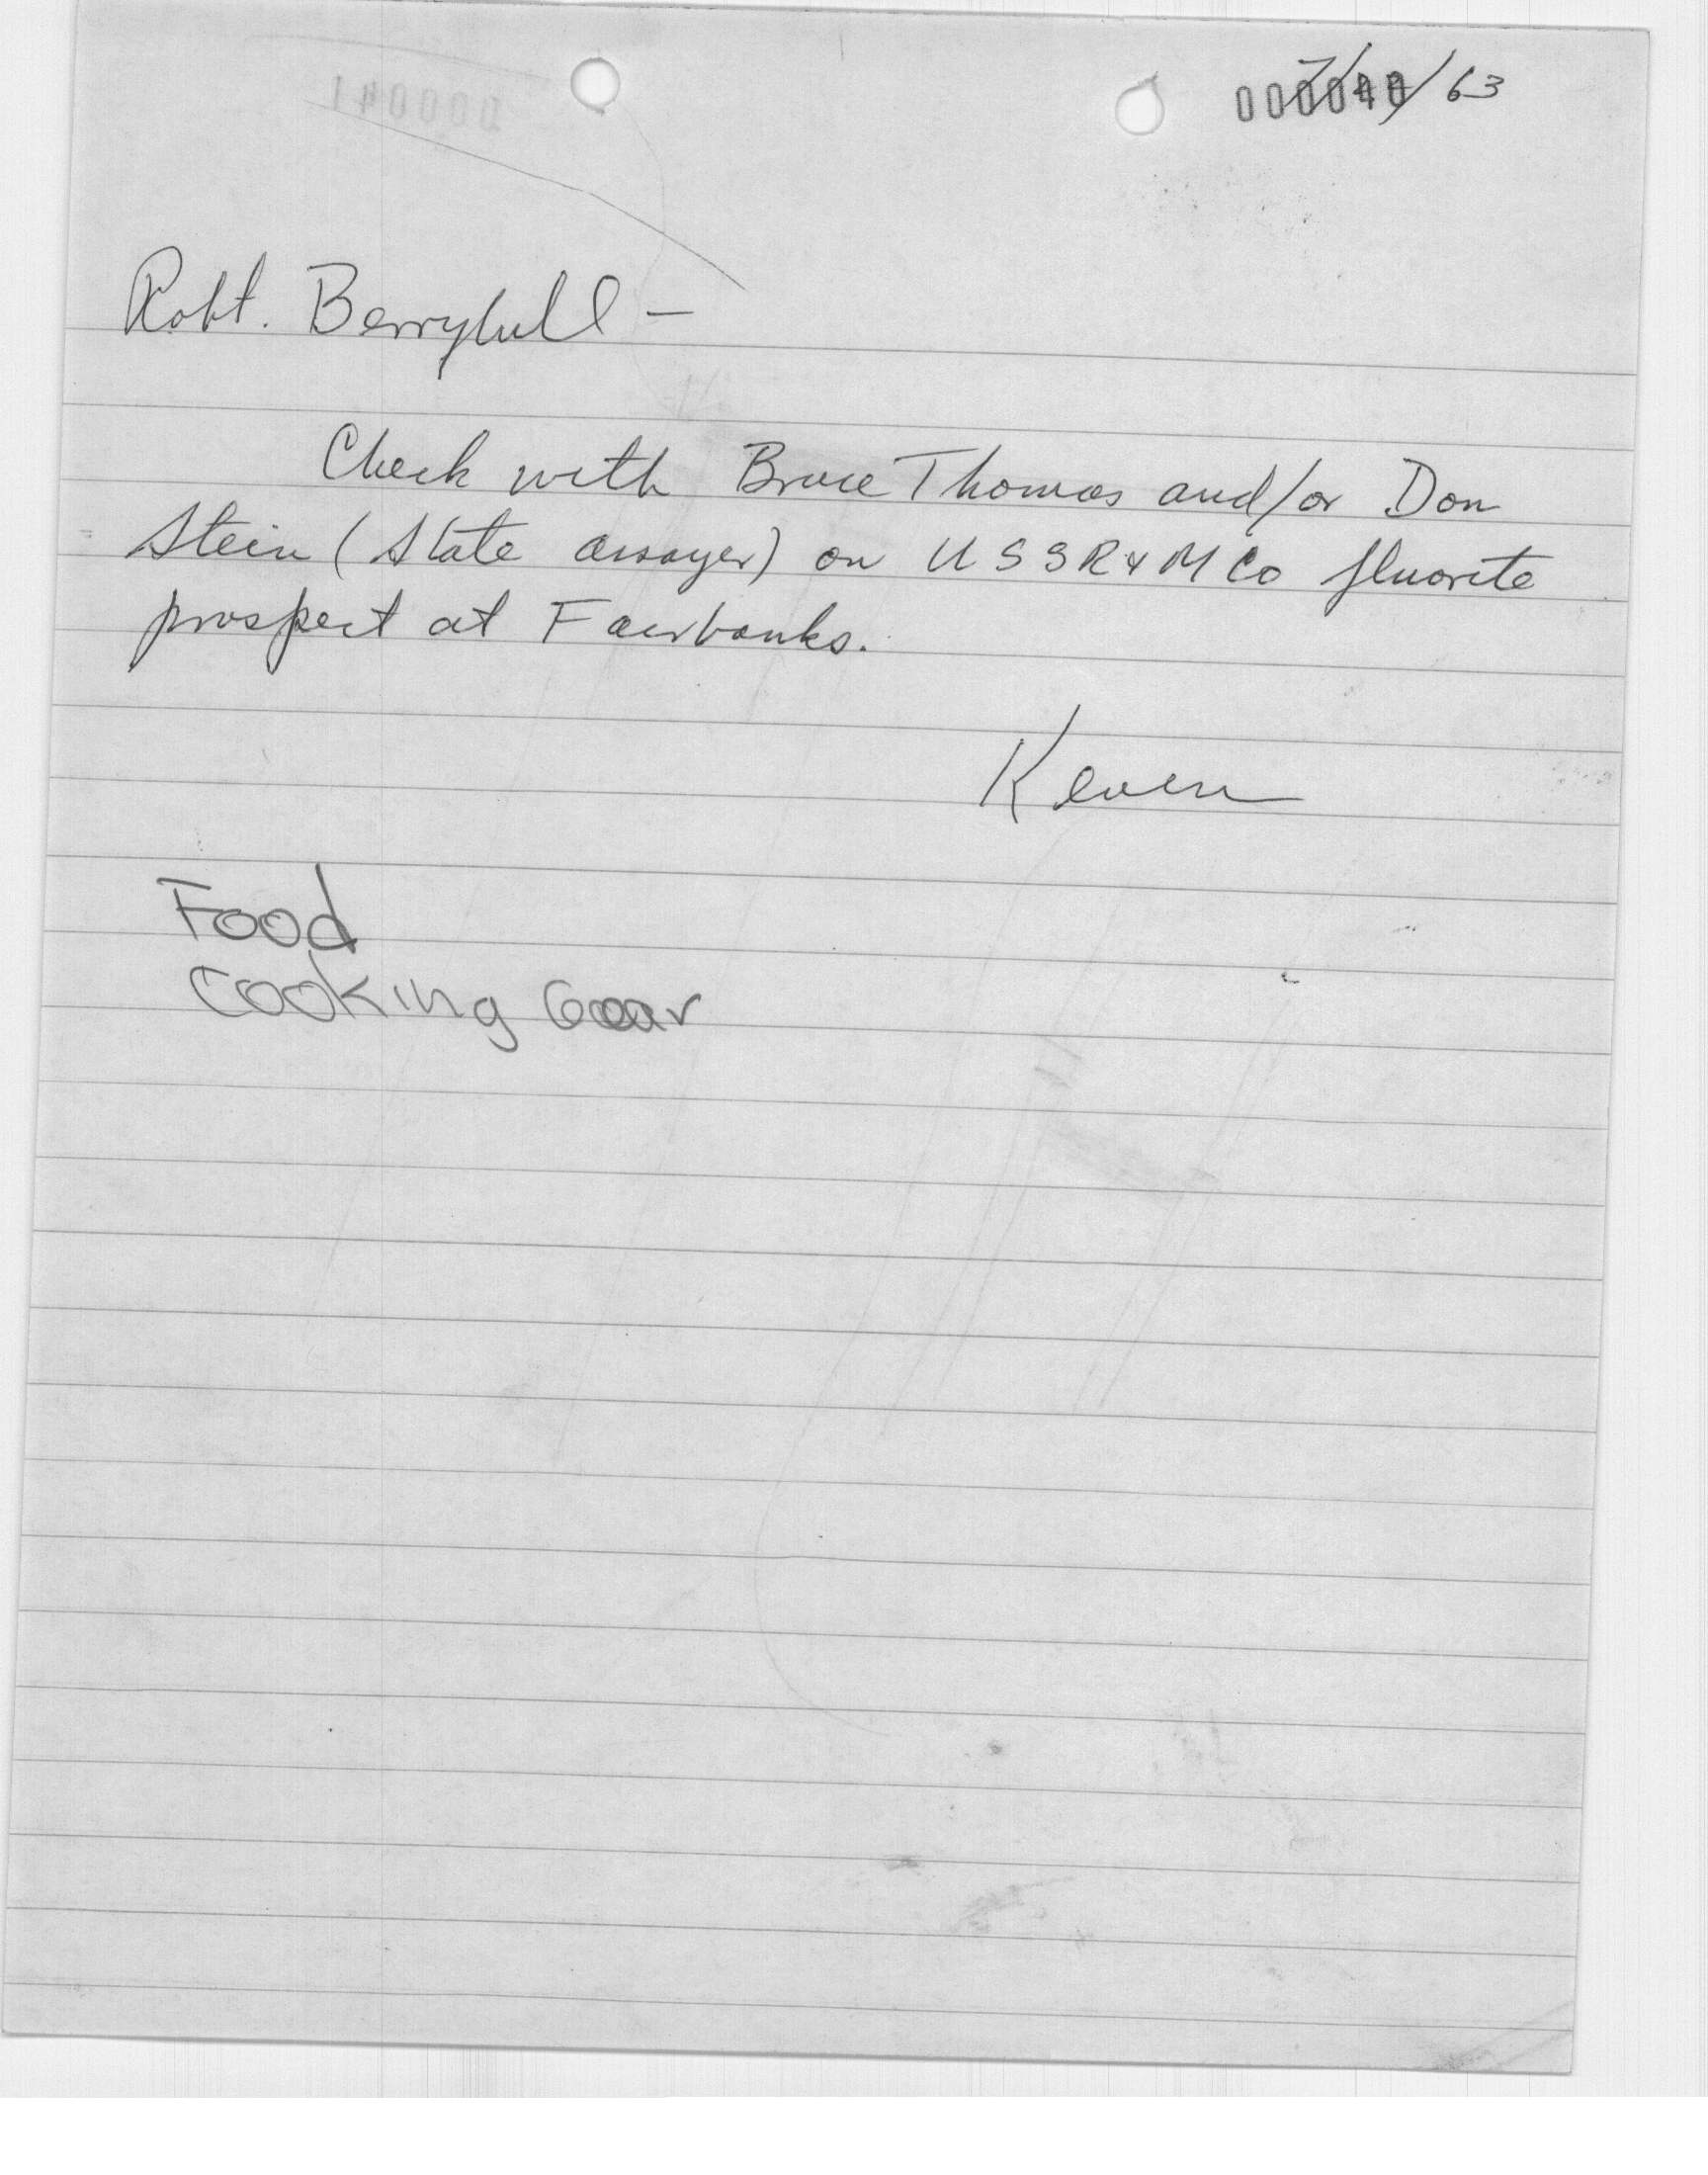 000040
/63
Robt. Berryhill —
Check with Bruce Thomas and/or Don
Stein (State assayer) on USSR&M Co fluorite
prospect at Fairbanks.
Keven
Food
Cooking Gear